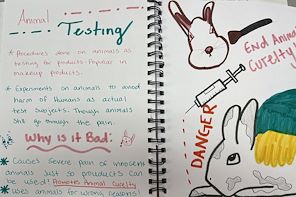 Animal
Testing
* Procedures done on animals as
testing for products. Popular in
makeup products.
* Experiments on animals to avoid
harm of Humans as actual
test Subjects. Though animals
still go through the pain.
Why is it Bad:
* Causes Severe pain of innocent
animals just so products can
be used! Promotes Animal Curelty
* Uses animals for wrong reasons!
End Animal
Curelty
DANGER